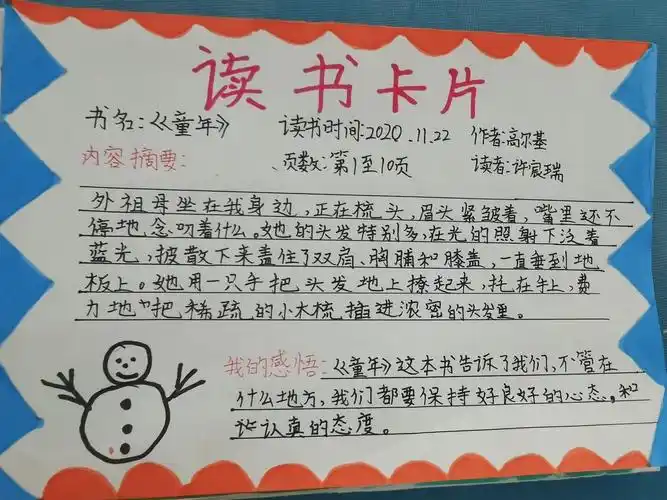 读书卡片
书名:《童年》 读书时间:2020.11.22 作者:高尔基
内容摘要: 、页数:第1至10页 读者:许宸瑞
外祖母坐在我身边,正在梳头,眉头紧皱着,嘴里还不
停地念叨着什么。她的头发特别多,在光的照射下泛着
蓝光,披散下来盖住了双肩、胸脯和膝盖,一直垂到地
板上。她用一只手把头发地上撩起来,托在手上,费
力地"把稀疏的小木梳插进浓密的头发里。
我的感悟:《童年》这本书告诉了我们,不管在
什么地方,我们都要保持好良好的心态。和
认真的态度。